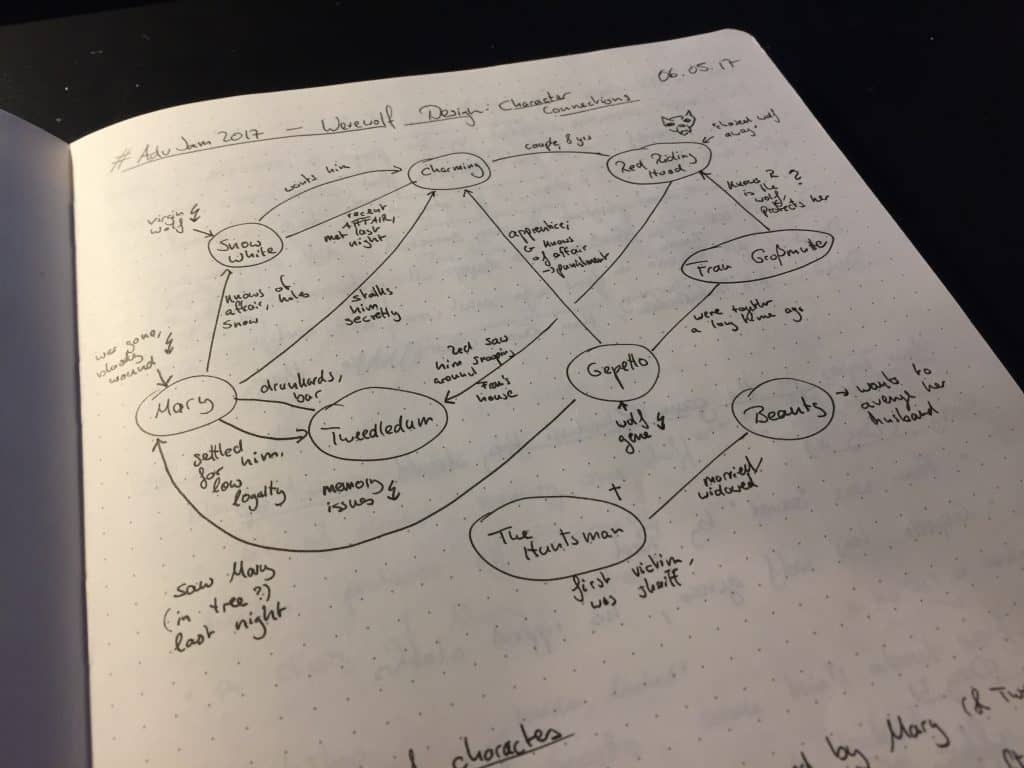 06.05.17
# AdvJam 2017 — Werewolf Design: Character
Connections
couple, 8 yrs
wants him
Charming
Red Riding
Hood
away.
virgin
wolf
Snow
White
recent
AFFAIR,
met last
night
apprentice,
knows
of affair
→ punishment
knows R
is the
wolf,
protects her
?
Frau Großmute
knows of
affair, hates
Snow
stalks
him
secretly
were together
a long time ago
was gone,
bloody
wound
Red saw
him snooping
around
Frau's
house
Mary
drunkards,
bar
Tweedledum
Gepetto
Beauty
→ wants to
avenge her
husband
wolf
gene
settled
for him,
low
loyalty
memory
issues
married/
widowed
The
Huntsman
first victim,
was
saw Mary
(in tree?)
last night
characters
by Mary (&